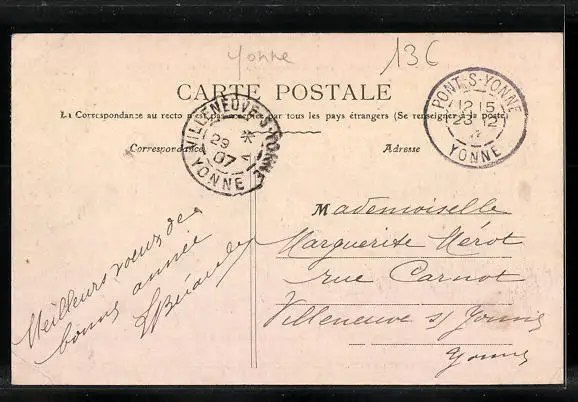 Yonne
136
CARTE POSTALE
La Correspondance au recto n'est pas acceptée par tous les pays étrangers (Se renseigner à la poste)
Correspondance
Adresse
VILLENEUVE-S-YONNE
29
07
YONNE
PONT-S-YONNE
12 15
29 12
YONNE
Meilleurs voeux de
bonne année
Mademoiselle
Marguerite Mérot
rue Carnot
Villeneuve s/ Yonne
Yonne